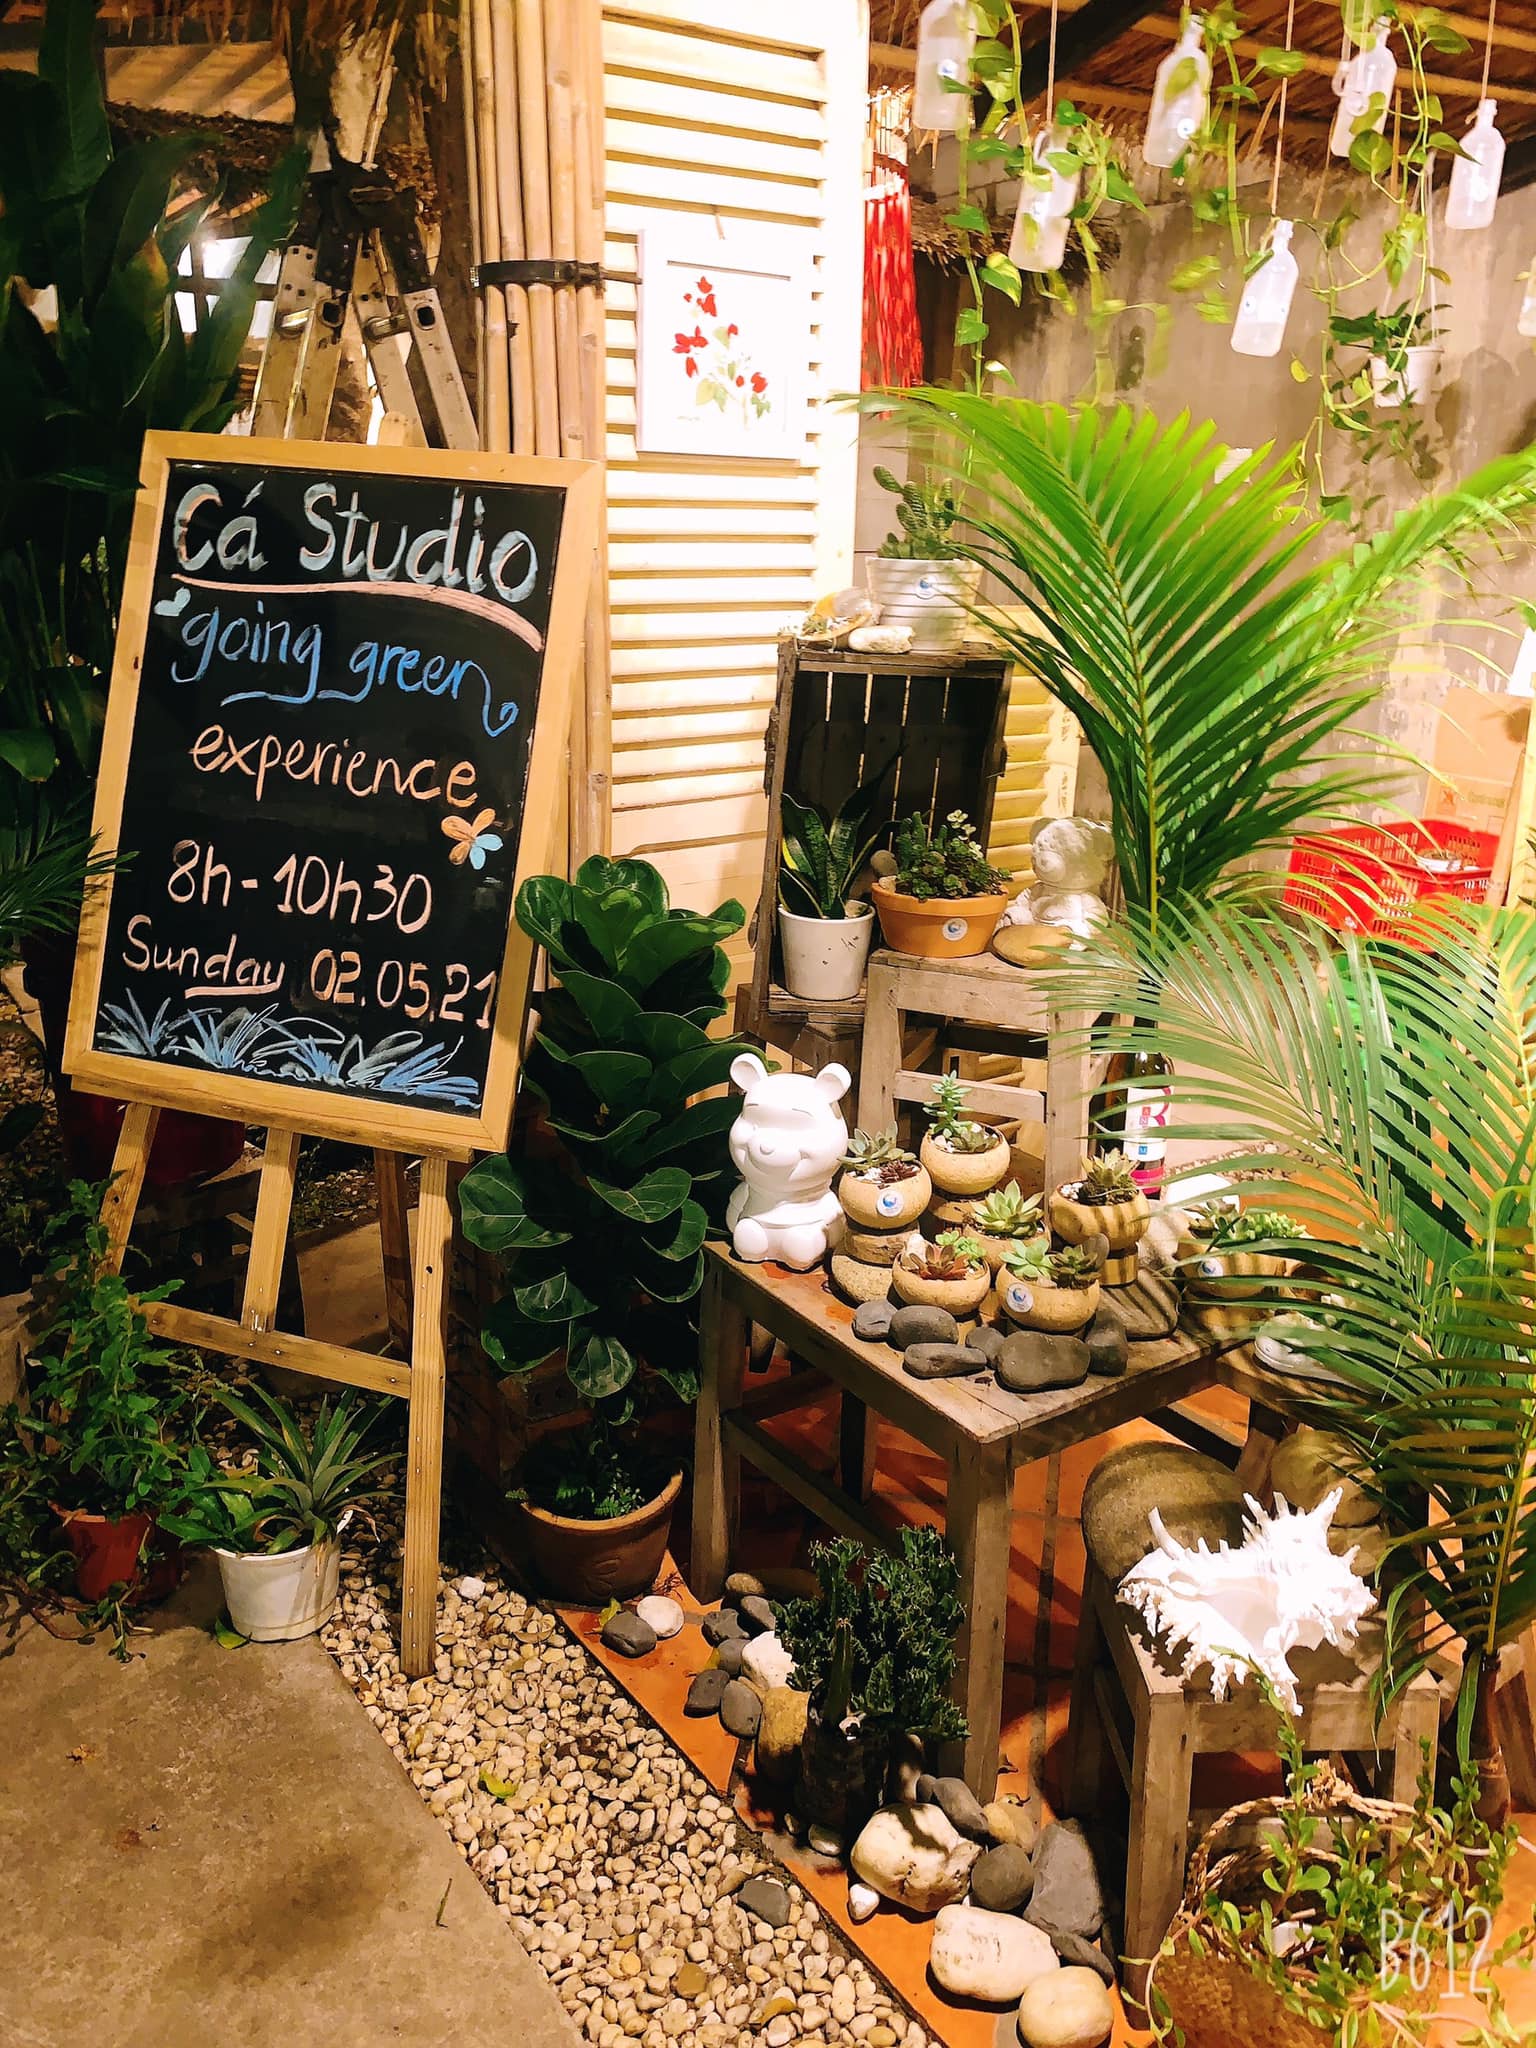 Cá Studio
going green
experience
8h-10h30
Sunday 02.05.21
B612